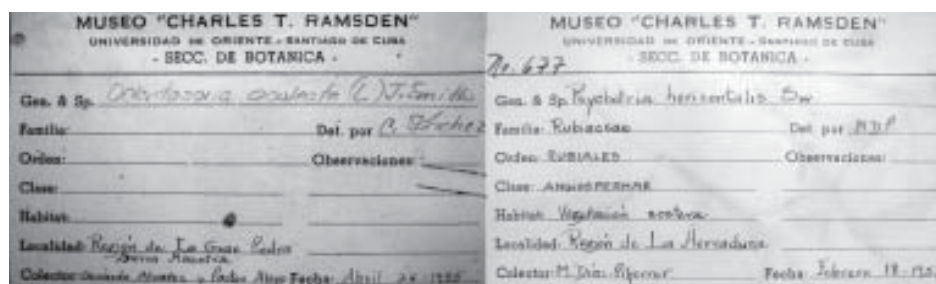 MUSEO "CHARLES T. RAMSDEN"
UNIVERSIDAD DE ORIENTE - SANTIAGO DE CUBA
- SECC. DE BOTANICA -
Gen. & Sp. (L) J. Smith
Familia: Det. por C. Sánchez
Orden: Observaciones:
Clase:
Habitat:
Localidad: Región de La Gran Piedra
Sierra Maestra
Colector: y Pedro Fecha: Abril 24
MUSEO "CHARLES T. RAMSDEN"
UNIVERSIDAD DE ORIENTE - SANTIAGO DE CUBA
- SECC. DE BOTANICA -
No. 677
Gen. & Sp. Psychotria horizontalis Sw
Familia: Rubiaceae Det. por M.D.P
Orden: RUBIALES Observaciones:
Clase: ANGIOSPERMAE
Habitat: Vegetación costera
Localidad: Región de La Herradura
Colector: M. Díaz Piferrer Fecha: Febrero 18